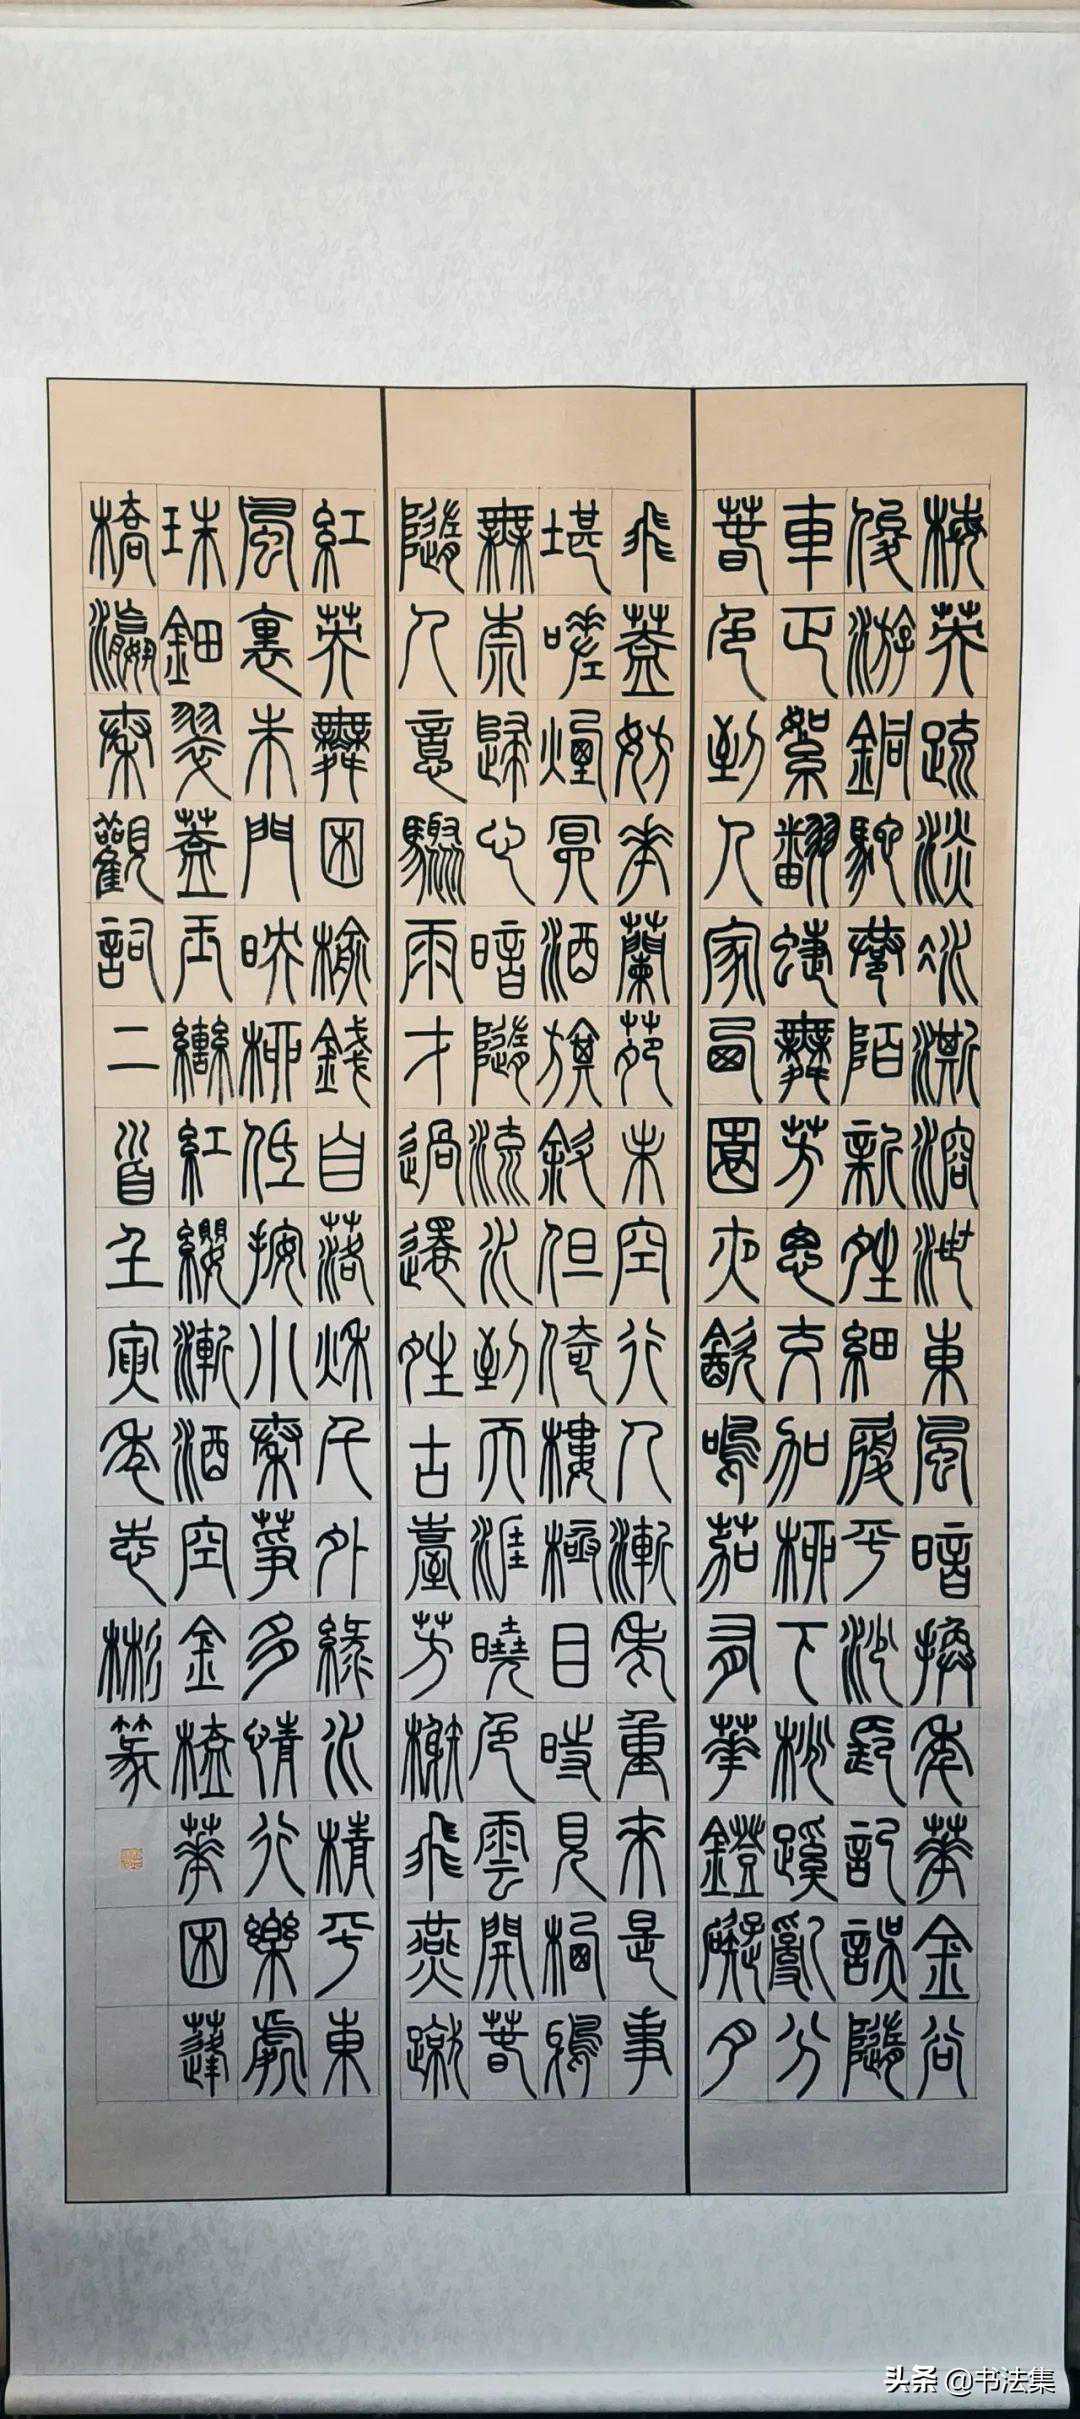 梅英疏淡冰澌溶泄東風暗換年華金谷
俊游銅駝巷陌新晴細履平沙長記誤隨
車正絮翻蝶舞芳思交加柳下桃蹊亂分
春色到人家西園夜飲鳴笳有華鐙礙月
飛蓋妨花蘭苑未空行人漸老重來是事
堪嗟煙冥酒旗斜但倚樓極目時見栖鴉
無柰歸心暗隨流水到天涯曉色雲開春
隨人意驟雨才過還晴古臺芳榭飛燕蹴
紅英舞困榆錢自落秌千外綠水精平東
風裏朱門映柳低按小秦箏多情行樂處
珠鈿翠蓋玉轡紅纓漸酒空金榼華困蓬
橋瀛秦觀詞二首壬寅年志彬篆
头条 @书法集